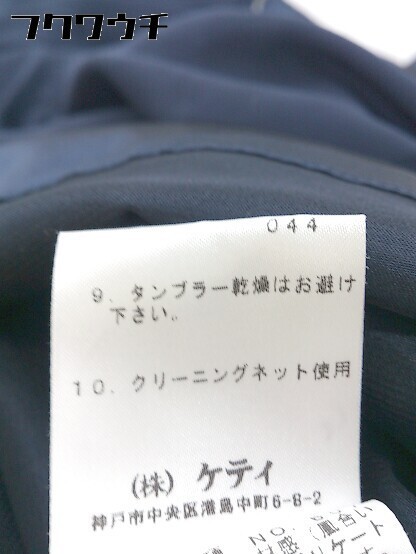 フクワウチ
044
9. タンブラー乾燥はお避け
下さい。
10. クリーニングネット使用
(株) ケティ
神戸市中央区港島中町6-8-2